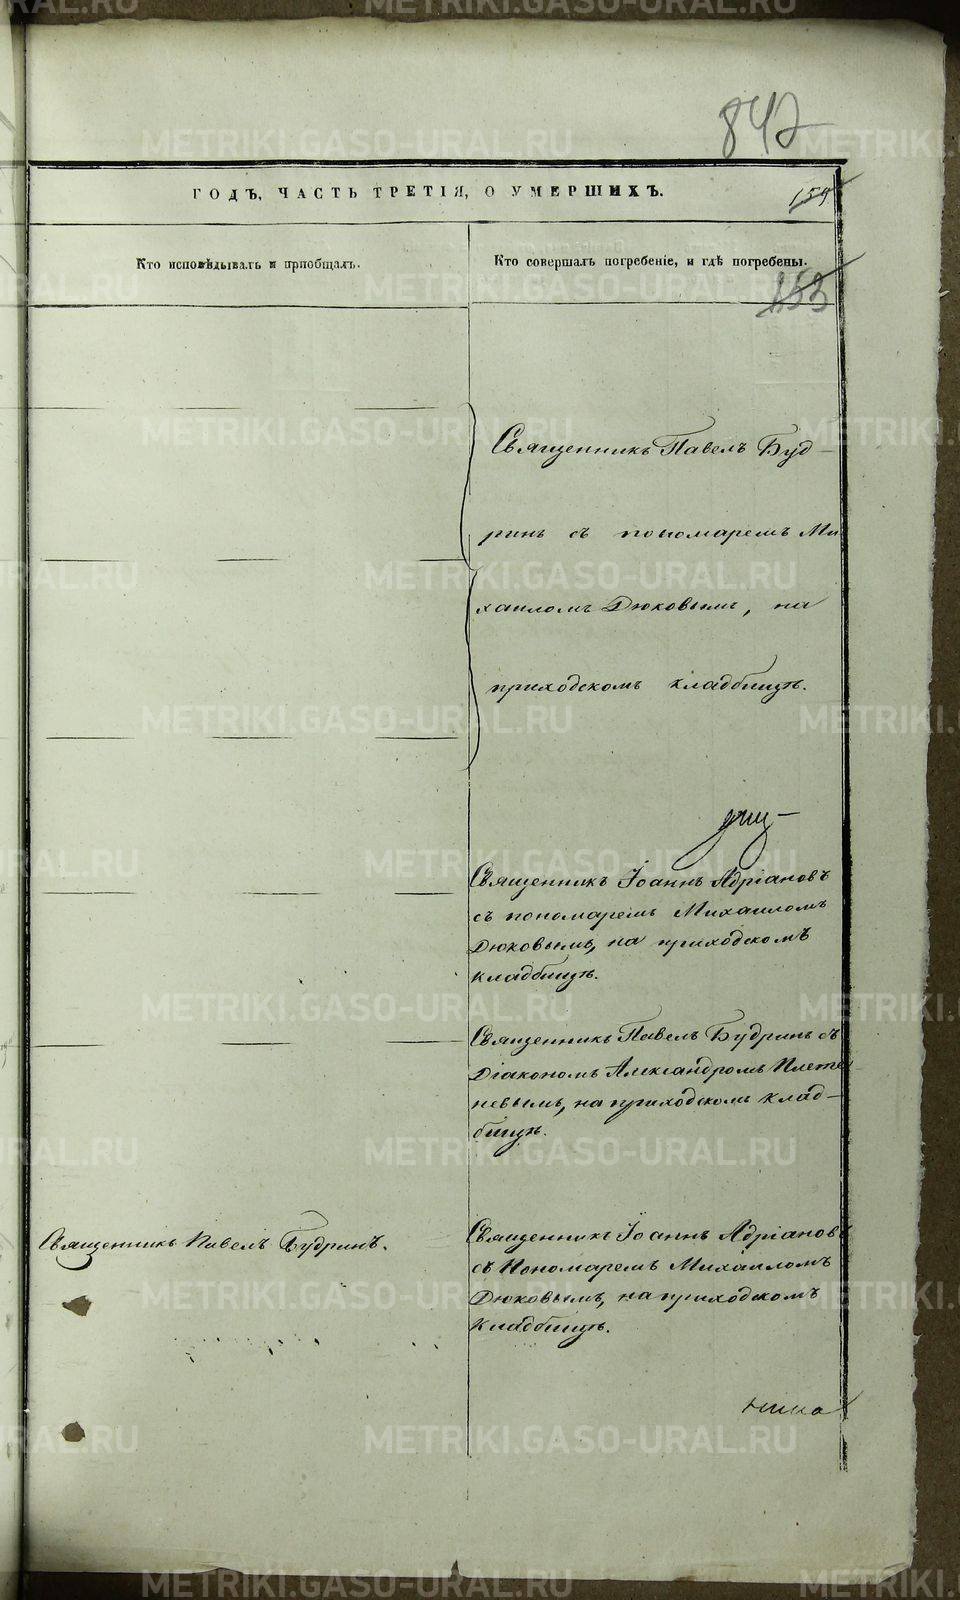 847
ГОДЪ, ЧАСТЬ ТРЕТІЯ, О УМЕРШИХЪ.
159
Кто исповѣдывалъ и пріобщалъ.
Кто совершалъ погребеніе, и гдѣ погребены.
153
Священникъ Павелъ Буд-
ринъ съ пономаремъ Ми
хаиломъ Дюковымъ, на
приходскомъ кладбищѣ.
Священникъ Іоаннъ Адріановъ
съ пономаремъ Михаиломъ
Дюковымъ, на приходскомъ
кладбищѣ.
Священникъ Павелъ Будринъ съ
Діакономъ Александромъ Плетe
невымъ, на приходскомъ клад-
бищѣ.
Священникъ Павелъ Будринъ.
Священникъ Іоаннъ Адріановъ
съ Пономаремъ Михаиломъ
Дюковымъ, на приходскомъ
кладбищѣ.
METRIKI.GASO-URAL.RU